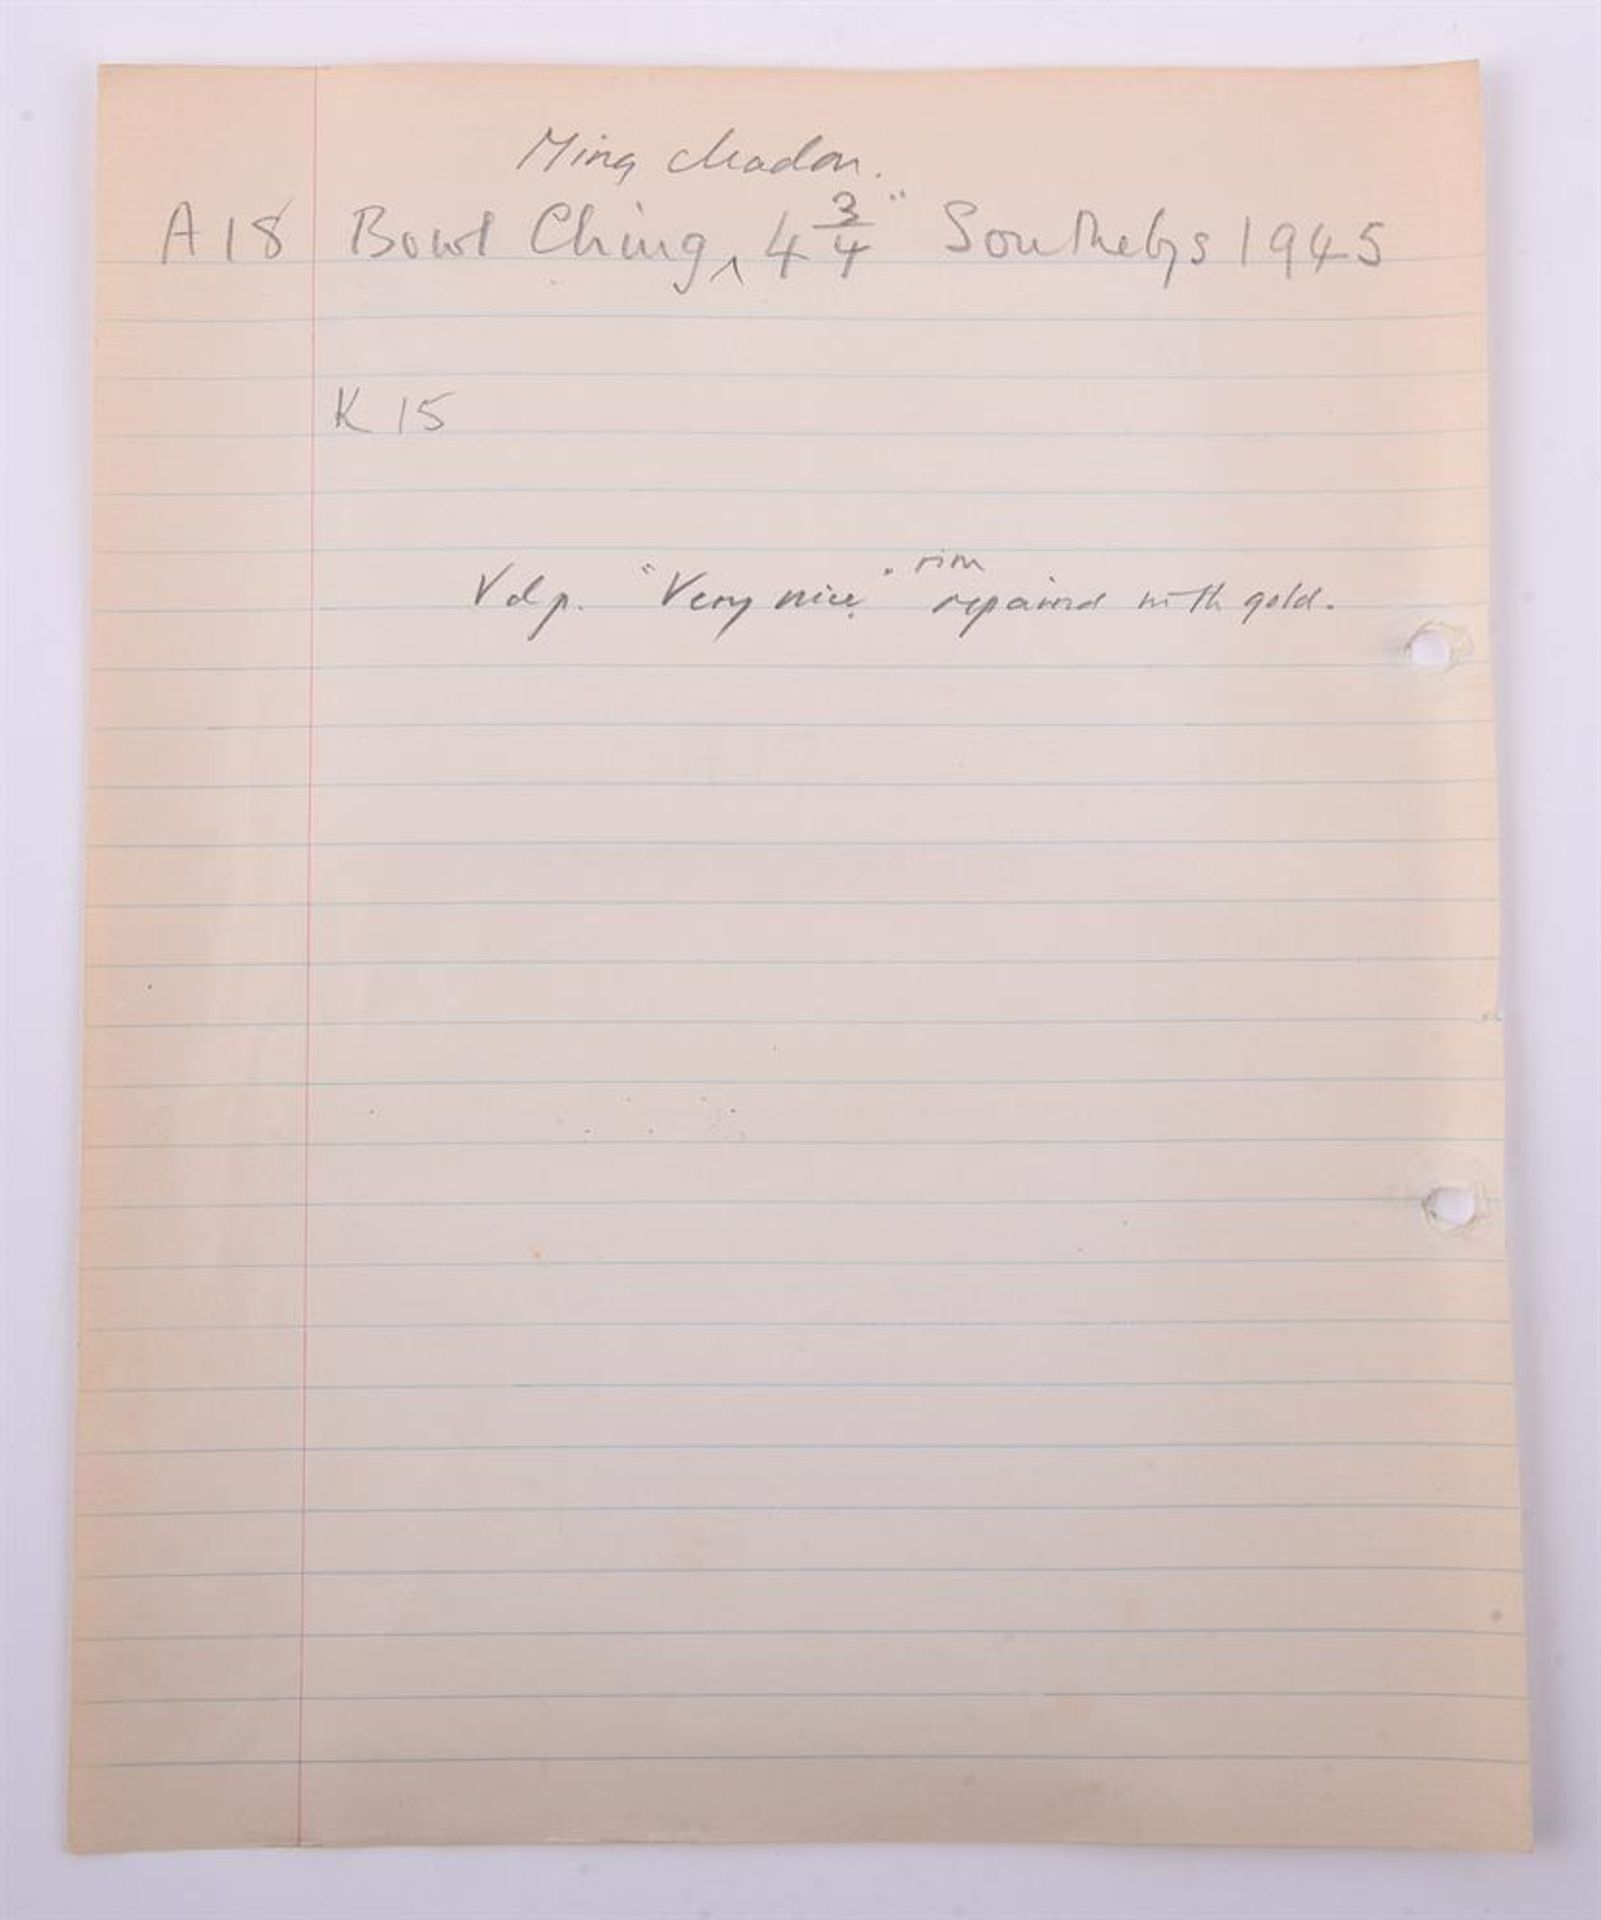 Ming celadon.
A18 Bowl Ching ‸ 4 3/4" Southebys 1945
K 15
rim
Vdp. "Very nice." repaired with gold.